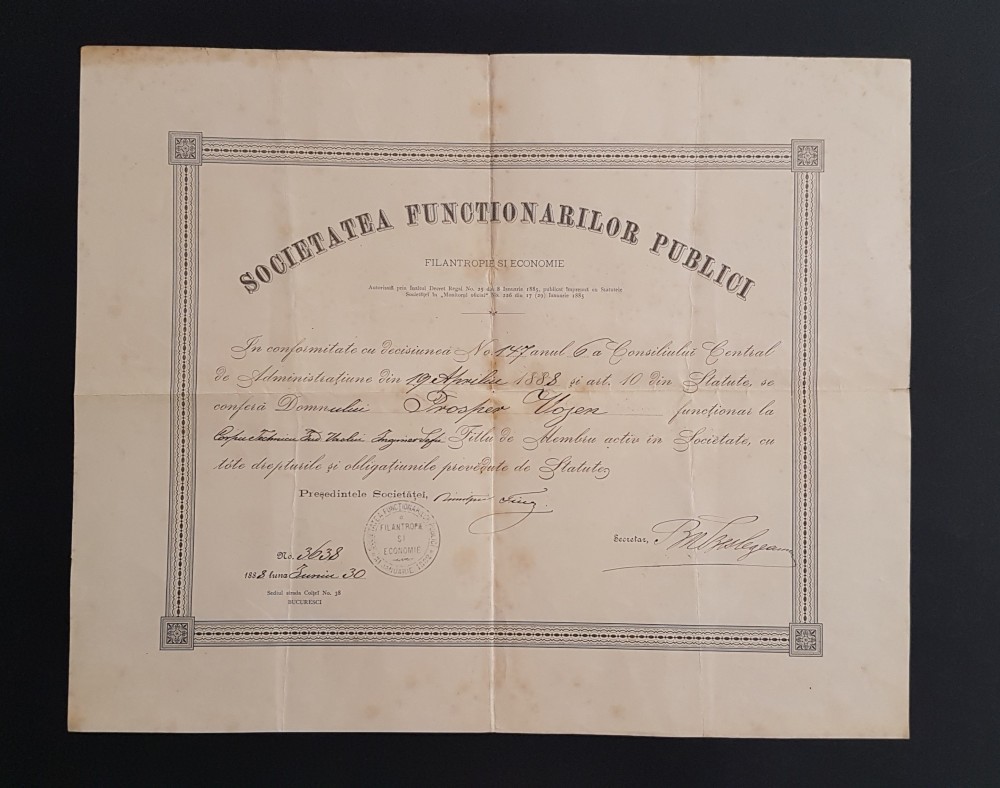 SOCIETATEA FUNCTIONARILOR PUBLICI
FILANTROPIE SI ECONOMIE
Autorisată prin Inaltul Decret Regal No. 25 din 8 Ianuarie 1883, publicat împreună cu Statutele
Societăţeĭ în „Monitorul oficial" No. 226 din 17 (29) Ianuarie 1883
In conformitate cu decisiunea No 147 anul 6 a Consiliuluĭ Central
de Administraţiune din 19 Aprilie 1888 şi art. 10 din Statute, se
conferă Domnului Prosper funcţionar la
Corpul Technicu Inginer Şefu Titlu de Membru activ în Societate, cu
tóte drepturile şi obligaţiunile prevĕdute de Statute
Preşedintele Societăţeĭ,
FILANTROPA
SI
ECONOMIE
Secretar,
No. 3638
1888 luna Juniu 30
Sediul strada Colţeĭ No. 38
BUCURESCI